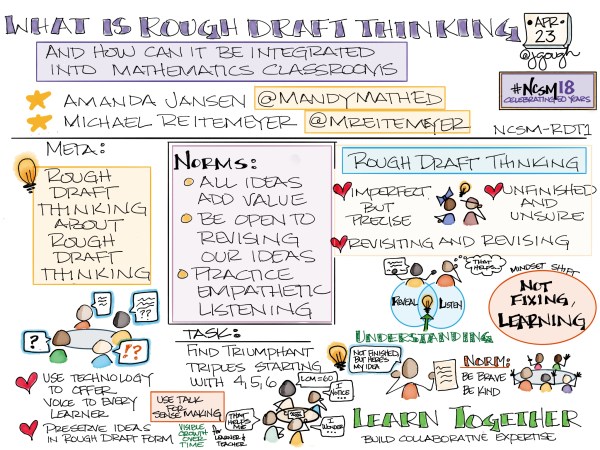 WHAT IS ROUGH DRAFT THINKING
AND HOW CAN IT BE INTEGRATED
INTO MATHEMATICS CLASSROOMS
APR
23
@jgough
#NCSM18
CELEBRATING 50 YEARS
AMANDA JANSEN @MANDYMATHED
MICHAEL REITEMEYER @MREITEMEYER
NCSM-RDT1
META:
ROUGH
DRAFT
THINKING
ABOUT
ROUGH
DRAFT
THINKING
NORMS:
ALL IDEAS
ADD VALUE
BE OPEN TO
REVISING
OUR IDEAS
PRACTICE
EMPATHETIC
LISTENING
ROUGH DRAFT THINKING
IMPERFECT
BUT
PRECISE
UNFINISHED
AND
UNSURE
REVISITING AND REVISING
THAT
HELPS..
REVEAL
LISTEN
UNDERSTANDING
MINDSET SHIFT
NOT
FIXING,
LEARNING
??
?
!?
USE TECHNOLOGY
TO OFFER
VOICE TO EVERY
LEARNER
PRESERVE IDEAS
IN ROUGH DRAFT FORM
TASK:
FIND TRIUMPHANT
TRIPLES STARTING
WITH 4,5,6
USE TALK
FOR
SENSE MAKING
VISIBLE
GROWTH
OVER
TIME
for
LEARNER &
TEACHER
THAT
HELPS
ME
LCM=60
I
NOTICE...
I
WONDER...
NOT FINISHED,
BUT HERE'S
MY IDEA
NORM:
BE BRAVE
BE KIND
LEARN TOGETHER
BUILD COLLABORATIVE EXPERTISE